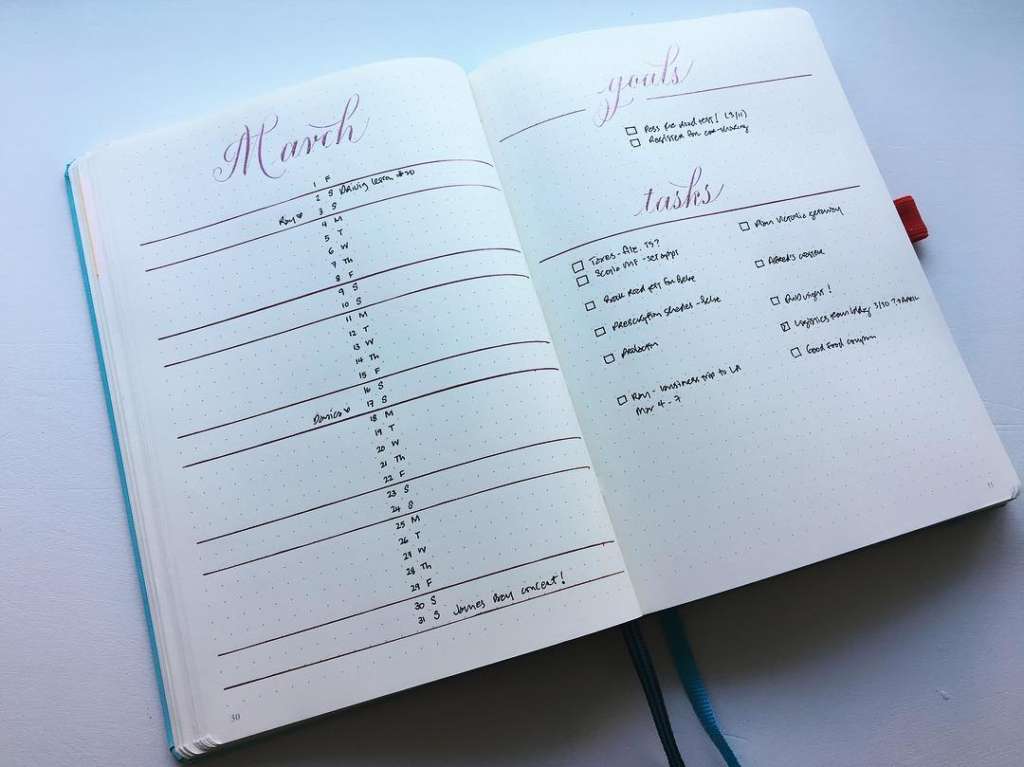 March
1 F
2 S Driving lesson #20
Ray ♥ 3 S
4 M
5 T
6 W
7 Th
8 F
9 S
10 S
11 M
12 T
13 W
14 Th
15 F
16 S
17 S
18 M
19 T
20 W
21 Th
22 F
23 S
24 S
25 M
26 T
27 W
28 Th
29 F
30 S
31 S James Bay concert!
30
goals
Pass the road test! (3/11)
Register for car-sharing
tasks
Taxes - file. T5?
Scotia MF -
Book road test for
Prescription
Ray - business trip to LA
Mar 4 - 7
Plan Victoria getaway
Logistics 3/30
Good Food coupon
31